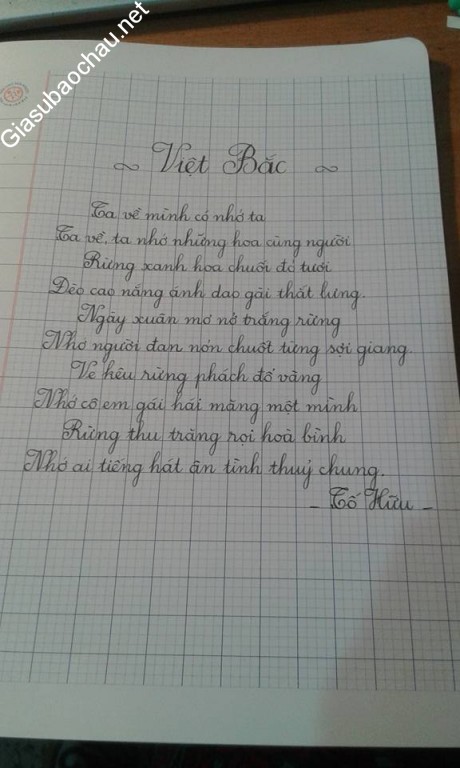 Giasubaochau.net
~ Việt Bắc ~
Ta về mình có nhớ ta
Ta về, ta nhớ những hoa cùng người
Rừng xanh hoa chuối đỏ tươi
Đèo cao nắng ánh dao gài thắt lưng.
Ngày xuân mơ nở trắng rừng
Nhớ người đan nón chuốt từng sợi giang.
Ve kêu rừng phách đổ vàng
Nhớ cô em gái hái măng một mình
Rừng thu trăng rọi hoà bình
Nhớ ai tiếng hát ân tình thuỷ chung.
- Tố Hữu -